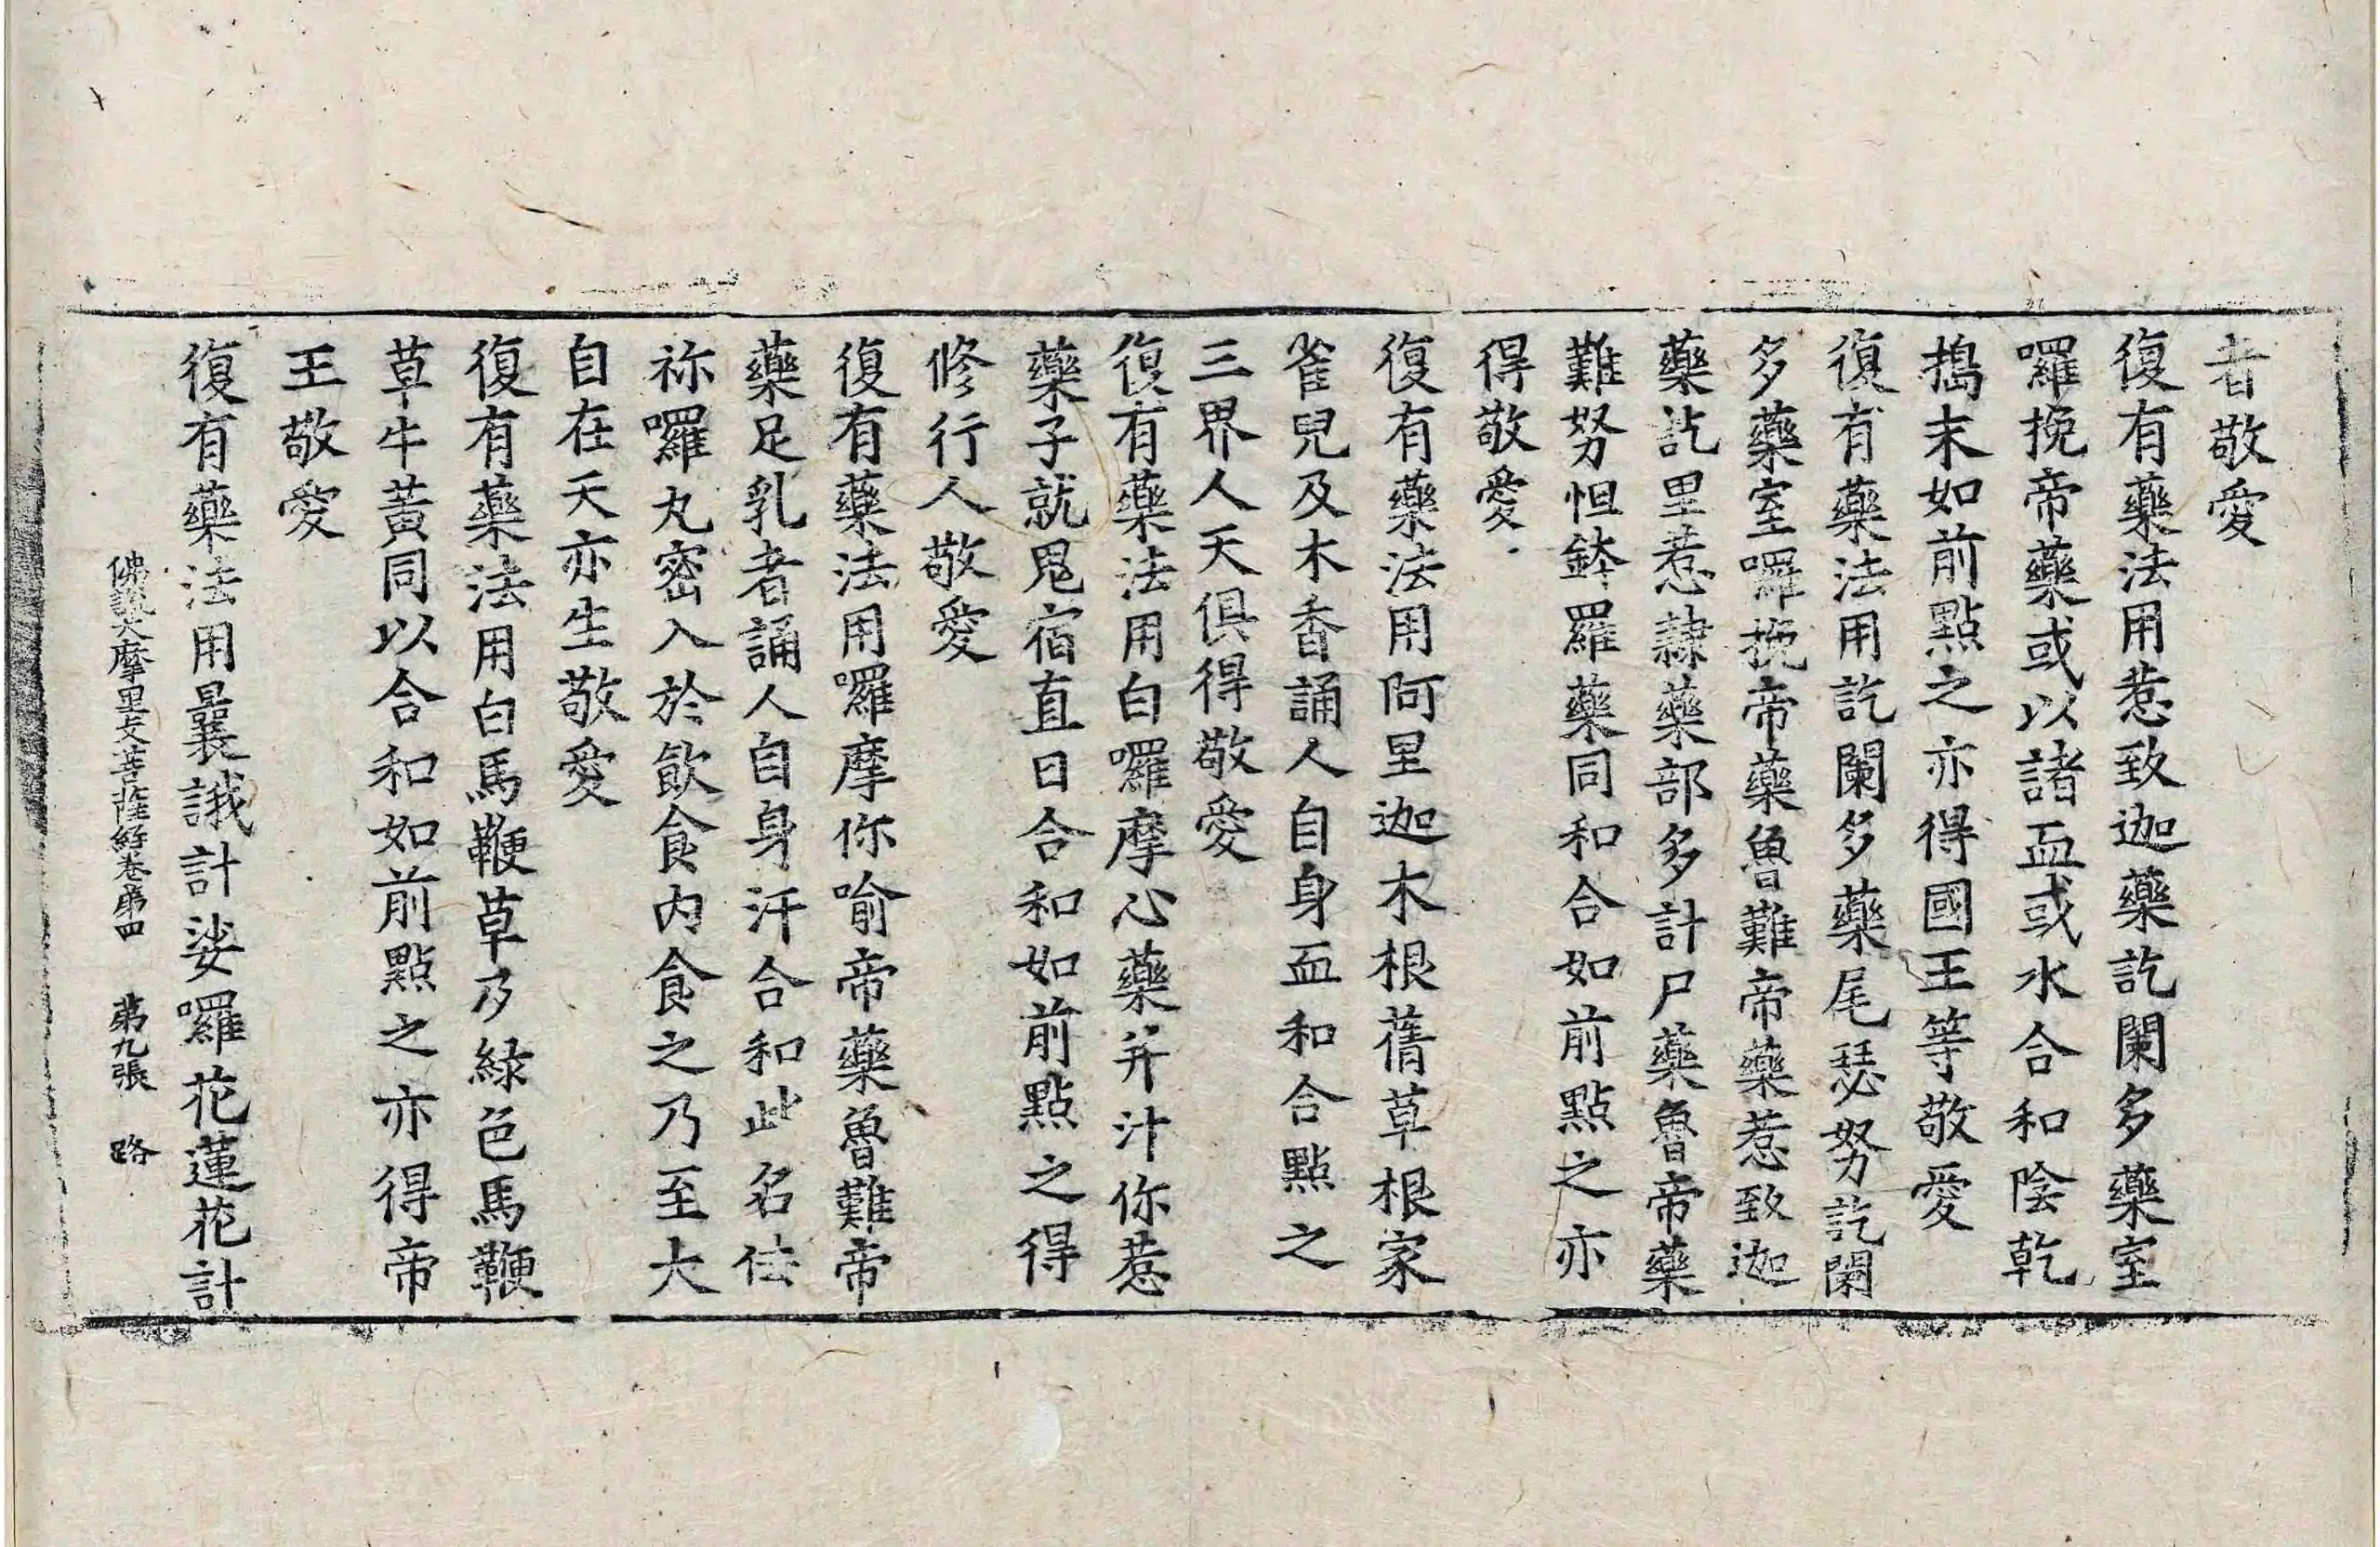 者敬愛
復有藥法用惹致迦藥訖闌多藥室
囉挽帝藥或以諸血或水合和陰乾
搗末如前點之亦得國王等敬愛
復有藥法用訖闌多藥尾瑟努訖闌
多藥室囉挽帝藥魯難帝藥惹致迦
藥訖里惹隷藥部多計尸藥魯帝藥
難努怛鉢羅藥同和合如前點之亦
得敬愛
復有藥法用阿里迦木根蒨草根家
雀兒及木香誦人自身血和合點之
三界人天俱得敬愛
復有藥法用白囉摩心藥并汁你惹
藥子就鬼宿直日合和如前點之得
修行人敬愛
復有藥法用囉摩你喻帝藥魯難帝
藥足乳者誦人自身汗合和此名佉
祢囉丸密入於飲食内食之乃至大
自在天亦生敬愛
復有藥法用白馬鞭草乃緑色馬鞭
草牛黃同以合和如前點之亦得帝
王敬愛
復有藥法用曩誐計娑囉花蓮花計
佛說大摩里支菩薩經卷第四 第九張 路